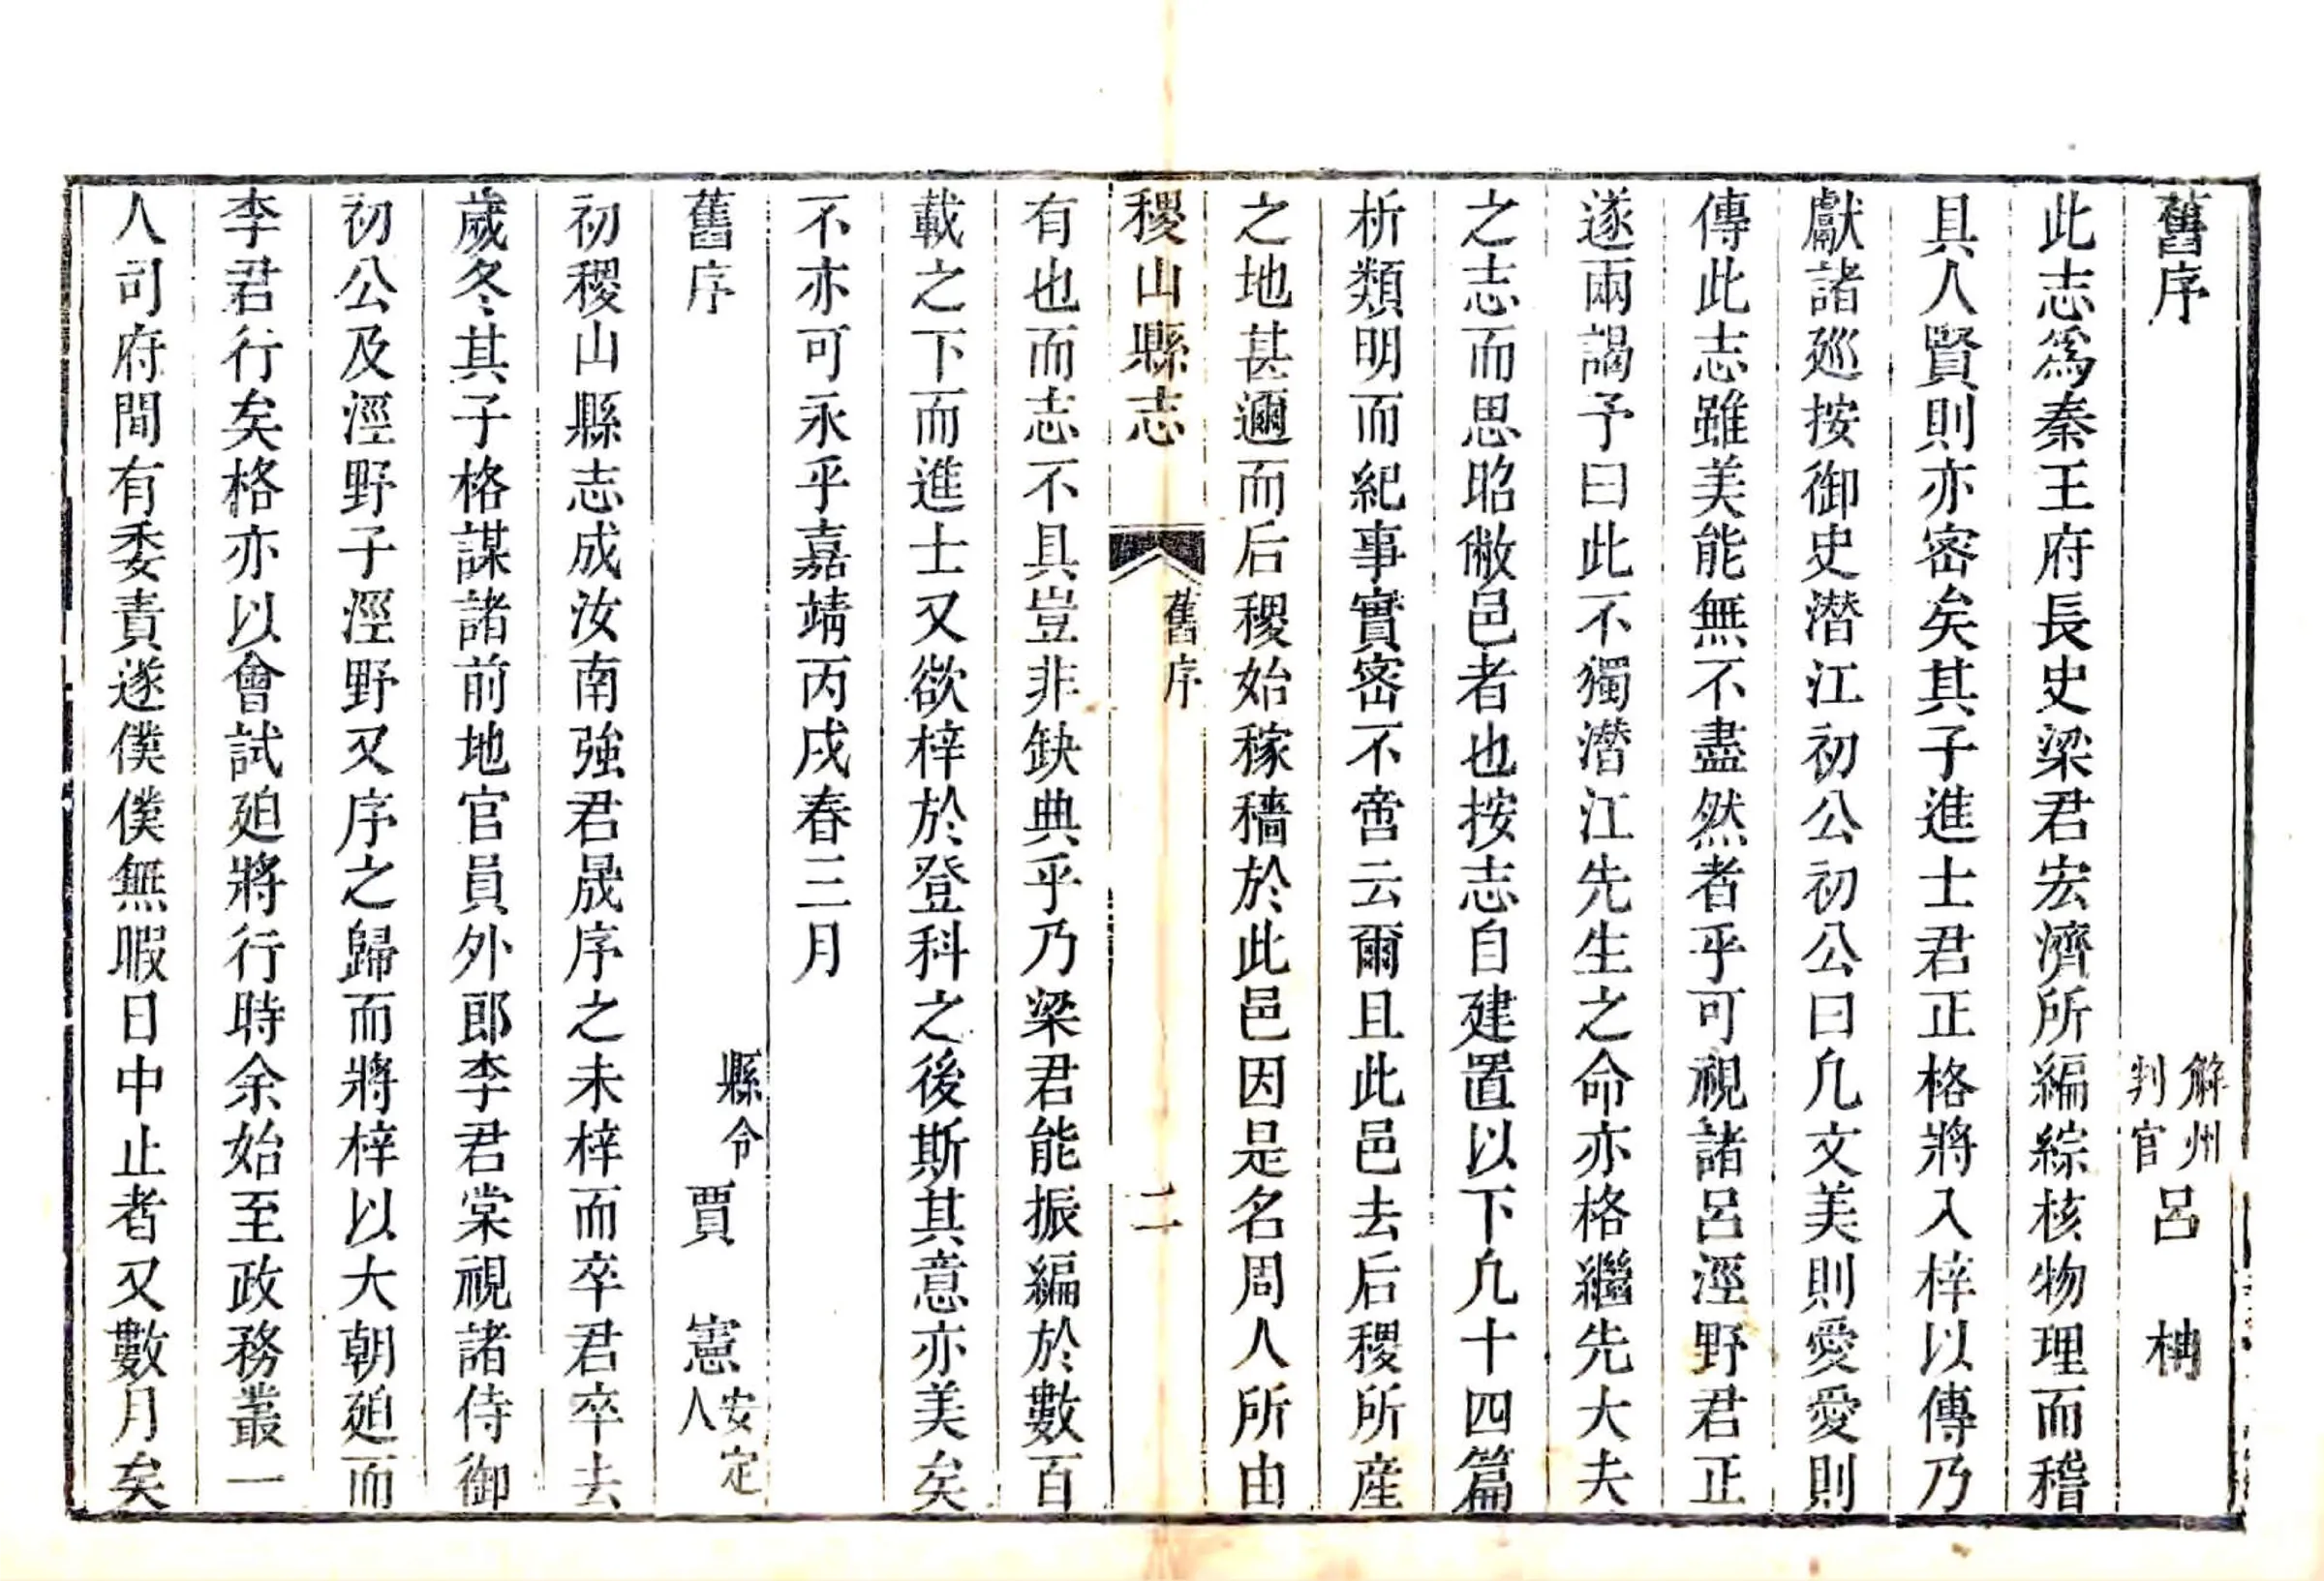 舊序 解州判官 呂 柟
此志爲秦王府長史梁君宏濟所編綜核物理而稽
具人賢則亦宻矣其子進士君正格將入梓以傳乃
獻諸廵按御史潜江初公初公曰凢文美則愛愛則
傳此志雖美能無不盡然者乎可視諸呂涇野君正
遂兩謁予曰此不獨潜江先生之命亦格繼先大夫
之志而思昭敝邑者也按志自建置以下凢十四篇
析類明而紀事實宻不啻云爾且此邑去后稷所産
之地甚邇而后稷始稼穡於此邑因是名周人所由
稷山縣志 舊序 二
有也而志不具豈非缺典乎乃梁君能振編於數百
載之下而進士又欲梓於登科之後斯其意亦美矣
不亦可永乎嘉靖丙戌春三月
舊序 縣令 賈 憲 安定人
初稷山縣志成汝南強君晟序之未梓而卒君卒去
歲冬其子格謀諸前地官員外郎李君棠視諸侍御
初公及涇野子涇野又序之歸而將梓以大朝廹而
李君行矣格亦以會試廹將行時余始至政務叢一
人司府間有委責遂僕僕無暇日中止者又數月矣